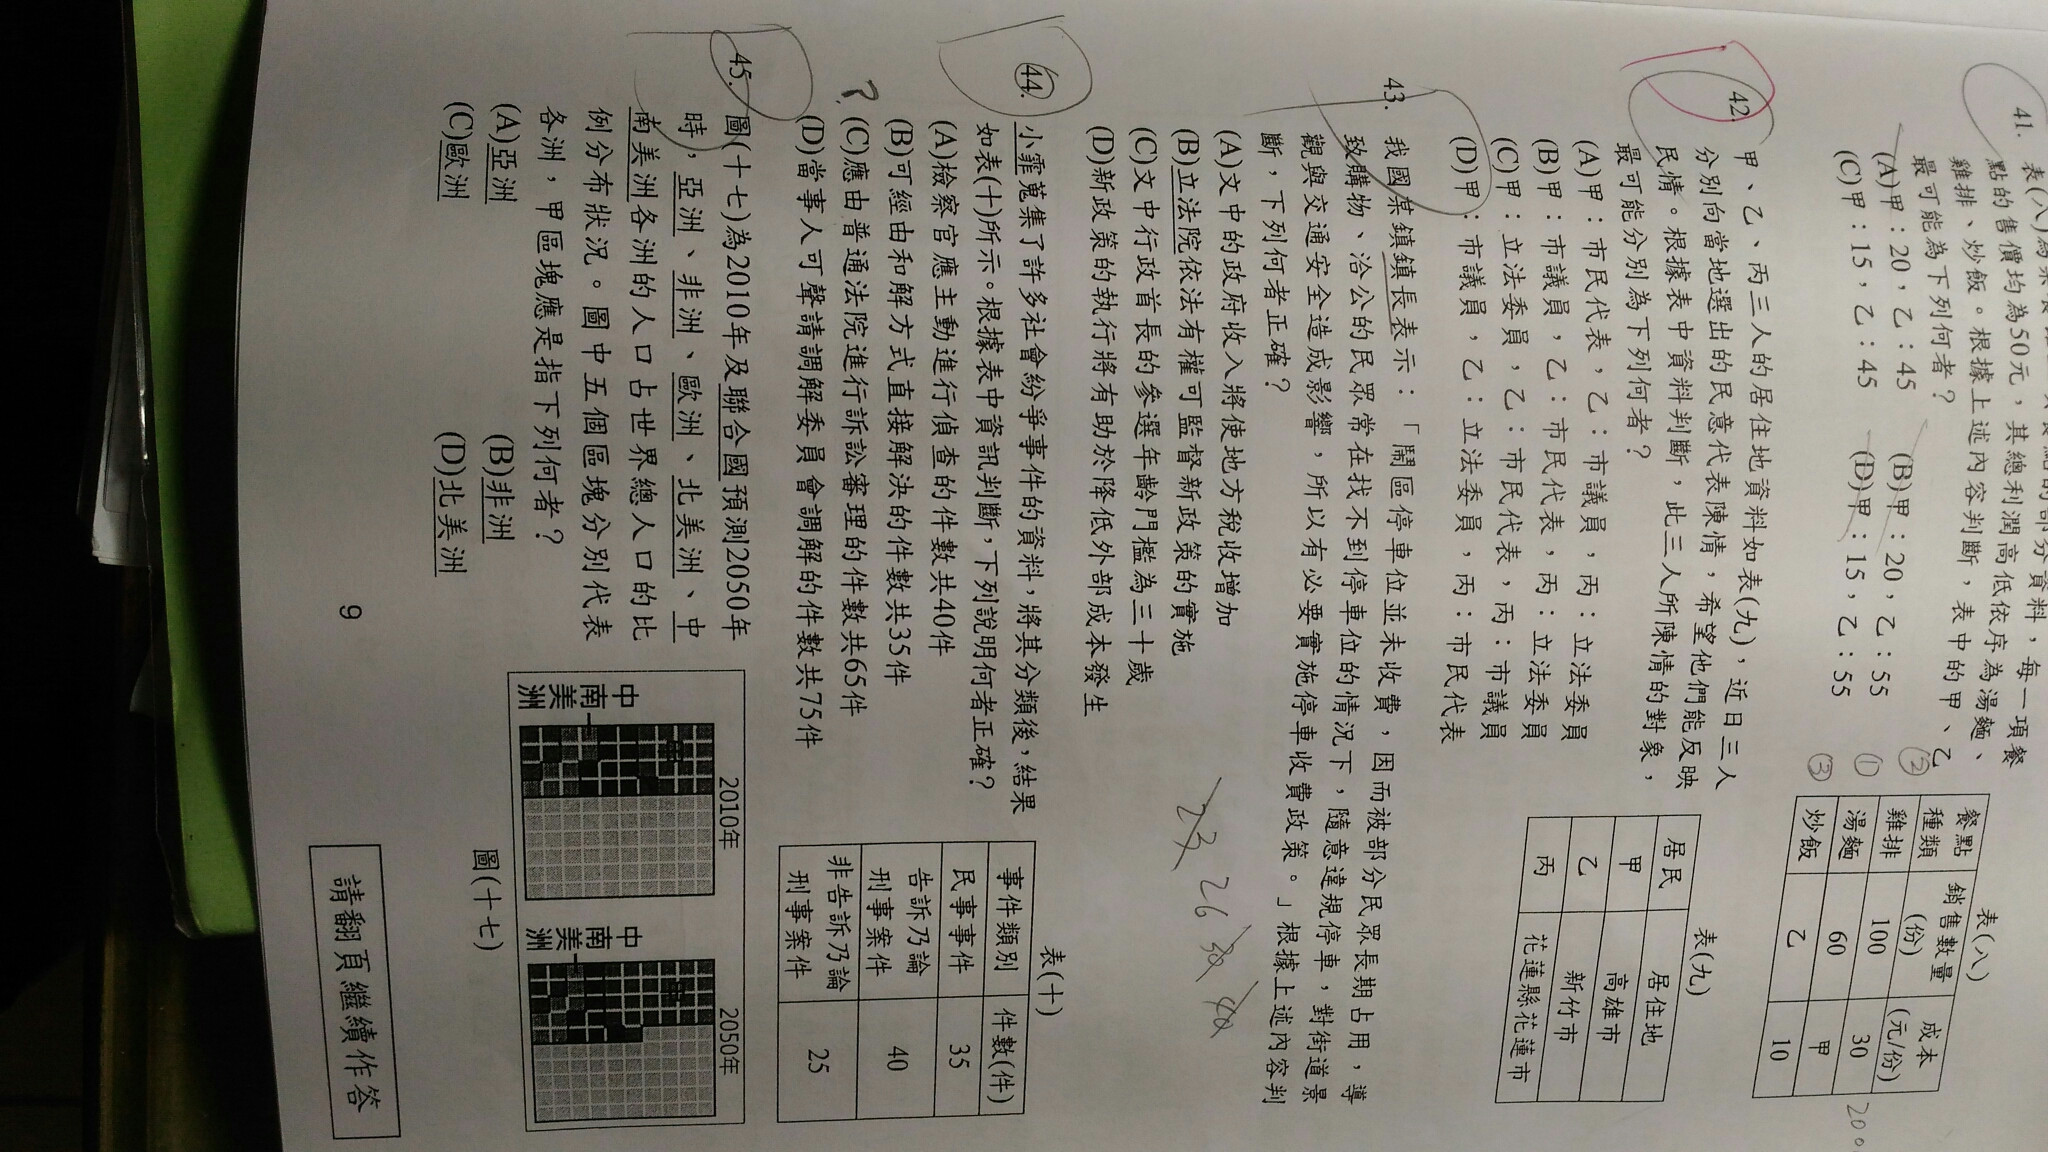 41.
點的售價均為50元，其總利潤高低依序為湯麵、
雞排、炒飯。根據上述內容判斷，表中的甲、乙
最可能為下列何者？
(A)甲：20，乙：45 (B)甲：20，乙：55
(C)甲：15，乙：45 (D)甲：15，乙：55
②
①
③
表(八)
餐點種類 銷售數量(份) 成本(元/份)
雞排 100 30
湯麵 60 甲
炒飯 乙 10
42. 甲、乙、丙三人的居住地資料如表(九)，近日三人
分別向當地選出的民意代表陳情，希望他們能反映
民情。根據表中資料判斷，此三人所陳情的對象，
最可能分別為下列何者？
(A)甲：市民代表，乙：市議員，丙：立法委員
(B)甲：市議員，乙：市民代表，丙：立法委員
(C)甲：立法委員，乙：市民代表，丙：市議員
(D)甲：市議員，乙：立法委員，丙：市民代表
表(九)
居民 居住地
甲 高雄市
乙 新竹市
丙 花蓮縣花蓮市
43. 我國某鎮鎮長表示：「鬧區停車位並未收費，因而被部分民眾長期占用，導
致購物、洽公的民眾常在找不到停車位的情況下，隨意違規停車，對街道景
觀與交通安全造成影響，所以有必要實施停車收費政策。」根據上述內容判
斷，下列何者正確？
(A)文中的政府收入將使地方稅收增加
(B)立法院依法有權可監督新政策的實施
(C)文中行政首長的參選年齡門檻為三十歲
(D)新政策的執行將有助於降低外部成本發生
26
44. 小霏蒐集了許多社會紛爭事件的資料，將其分類後，結果
如表(十)所示。根據表中資訊判斷，下列說明何者正確？
(A)檢察官應主動進行偵查的件數共40件
(B)可經由和解方式直接解決的件數共35件
? (C)應由普通法院進行訴訟審理的件數共65件
(D)當事人可聲請調解委員會調解的件數共75件
表(十)
事件類別 件數(件)
民事事件 35
告訴乃論刑事案件 40
非告訴乃論刑事案件 25
45. 圖(十七)為2010年及聯合國預測2050年
時，亞洲、非洲、歐洲、北美洲、中
南美洲各洲的人口占世界總人口的比
例分布狀況。圖中五個區塊分別代表
各洲，甲區塊應是指下列何者？
(A)亞洲 (B)非洲
(C)歐洲 (D)北美洲
2010年 2050年
中南美洲 中南美洲
圖(十七)
9
請翻頁繼續作答